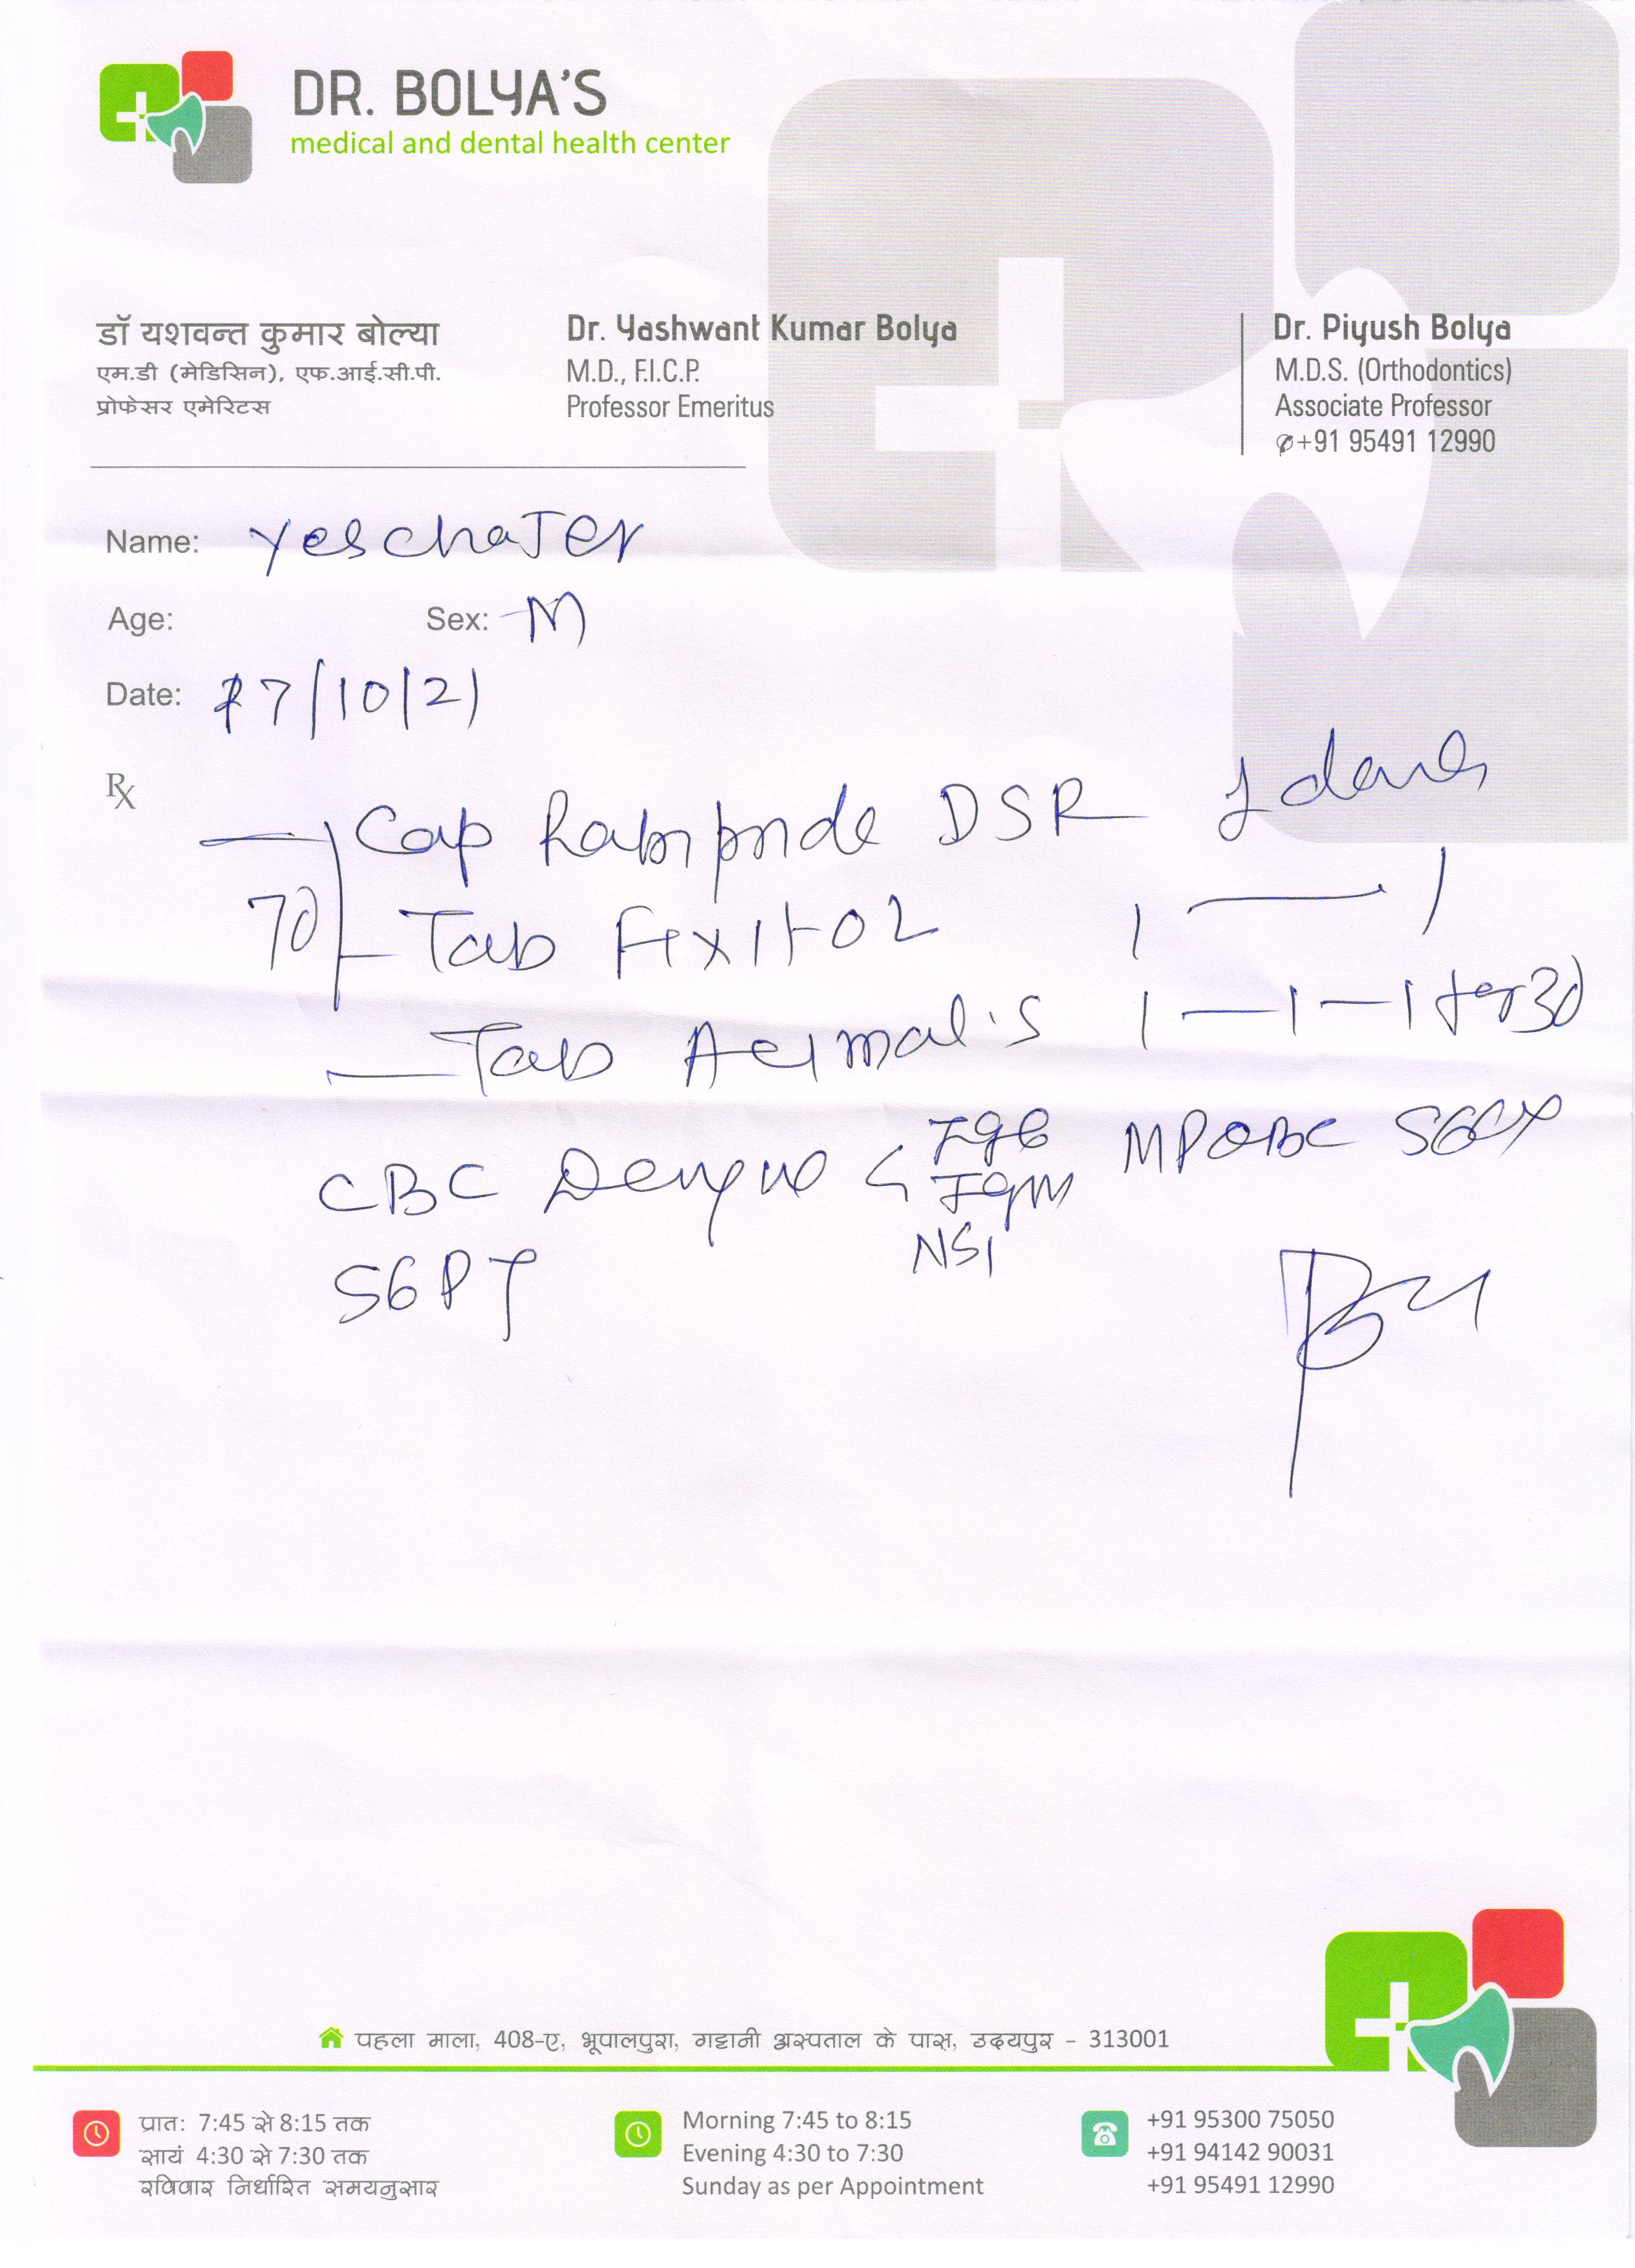 DR. BOLYA'S
medical and dental health center
डॉ यशवन्त कुमार बोल्या
एम.डी (मेडिसिन), एफ.आई.सी.पी.
प्रोफेसर एमेरिटस
Dr. Yashwant Kumar Bolya
M.D., F.I.C.P.
Professor Emeritus
Dr. Piyush Bolya
M.D.S. (Orthodontics)
Associate Professor
+91 95491 12990
Name: Yeschater
Age: Sex: M
Date: 27/10/21
Rx
Cap DSR 1
7d Tab 1 — 1
Tab 1 — 1 — 1 for 3d
CBC Dengue < IgG
IgM
NS1
SGPT
पहला माला, 408-ए, भूपालपुरा, गट्टानी अस्पताल के पास, उदयपुर - 313001
प्रात: 7:45 से 8:15 तक
सायं 4:30 से 7:30 तक
रविवार निर्धारित समयनुसार
Morning 7:45 to 8:15
Evening 4:30 to 7:30
Sunday as per Appointment
+91 95300 75050
+91 94142 90031
+91 95491 12990